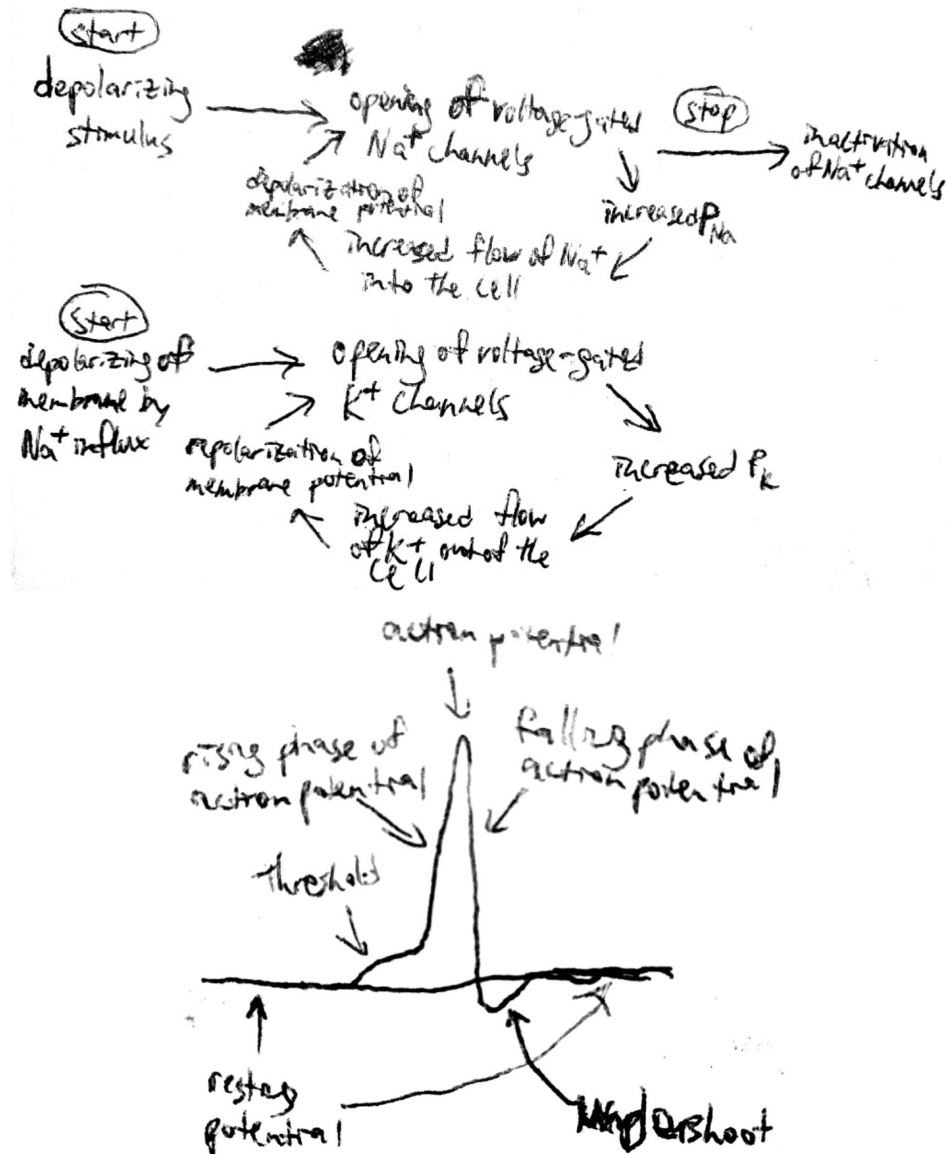 start
depolarizing
stimulus
opening of voltage-gated
Na+ channels
stop
inactivation
of Na+ channels
increased PNa
increased flow of Na+
into the cell
depolarization of
membrane potential
start
depolarizing of
membrane by
Na+ influx
opening of voltage-gated
K+ channels
increased PK
increased flow
of K+ out of the
cell
repolarization of
membrane potential
action potential
rising phase of
action potential
falling phase of
action potential
threshold
resting
potential
undershoot